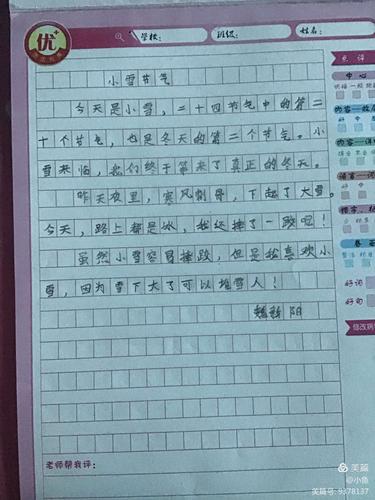 优
学校: 班级: 姓名:
小雪节气
今天是小雪，二十四节气中的第二
十个节气，也是冬天的第二个节气。小
雪来临，我们终于等来了真正的冬天。
昨天夜里，寒风刺骨，下起了大雪。
今天，路上都是冰，我还摔了一跤呢！
虽然小雪容易摔跤，但是我喜欢小
雪，因为雪下大了可以堆雪人！
阳
老师帮我评:
点评
中心
好词
好句
修改巩
美篇
@小鱼
美篇号: 9378137